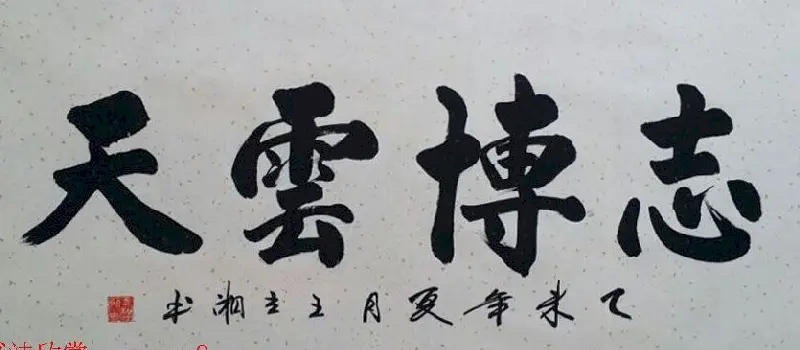 志博雲天
乙未年夏月王立湘书